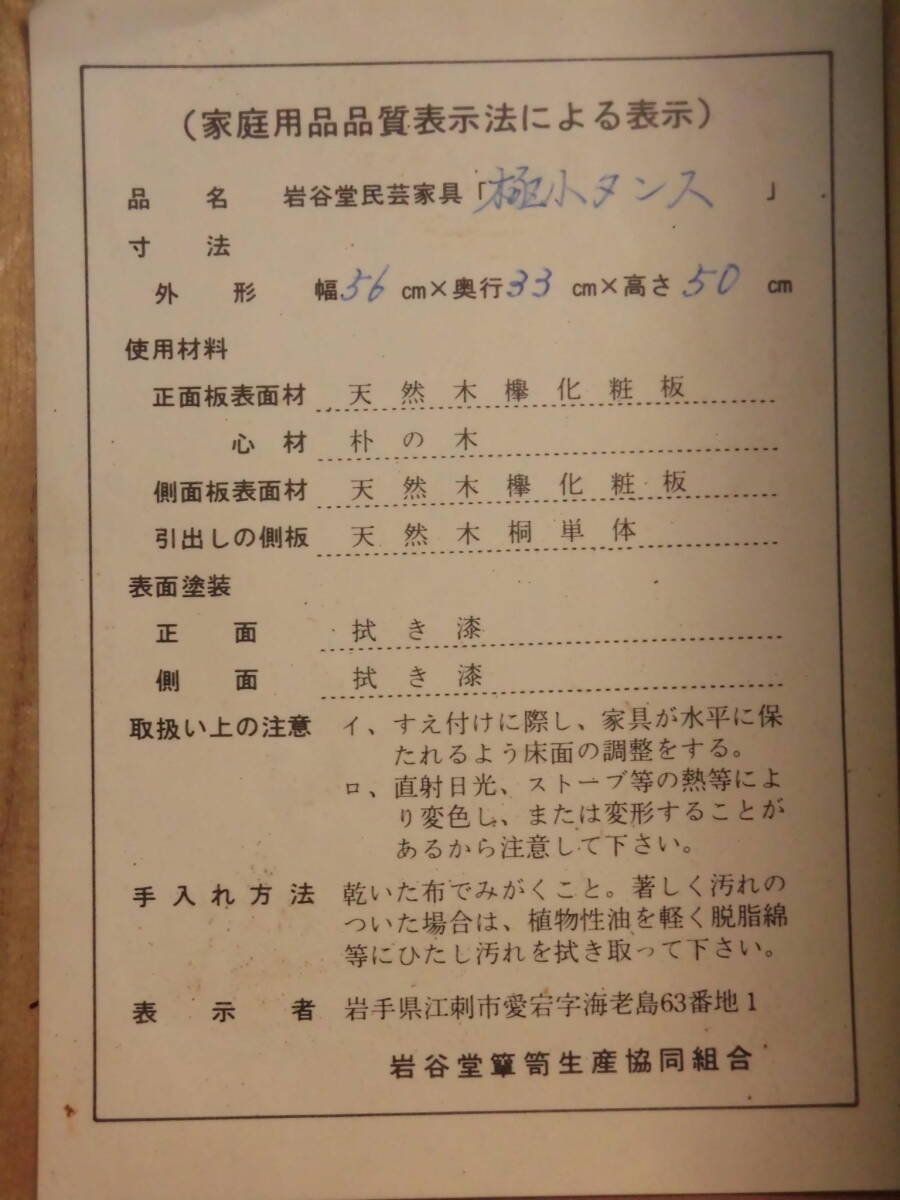 （家庭用品品質表示法による表示）
品名 岩谷堂民芸家具「極小タンス」
寸法
外形 幅56cm×奥行33cm×高さ50cm
使用材料
正面板表面材 天然木欅化粧板
心材 朴の木
側面板表面材 天然木欅化粧板
引出しの側板 天然木桐単体
表面塗装
正面 拭き漆
側面 拭き漆
取扱い上の注意 イ、すえ付けに際し、家具が水平に保
たれるよう床面の調整をする。
ロ、直射日光、ストーブ等の熱等によ
り変色し、または変形することが
あるから注意して下さい。
手入れ方法 乾いた布でみがくこと。著しく汚れの
ついた場合は、植物性油を軽く脱脂綿
等にひたし汚れを拭き取って下さい。
表示者 岩手県江刺市愛宕字海老島63番地1
岩谷堂簞笥生産協同組合